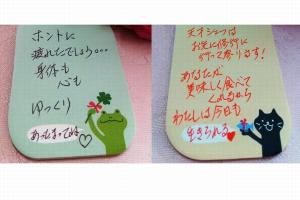 ホントに
疲れたでしょう...
身体も
心も
ゆっくり
あったまってね♡
天才シェフは
お空に修行に
行って参ります!
あなたが
美味しく食べて
くれるから
わたしは今日も
生きられる♥